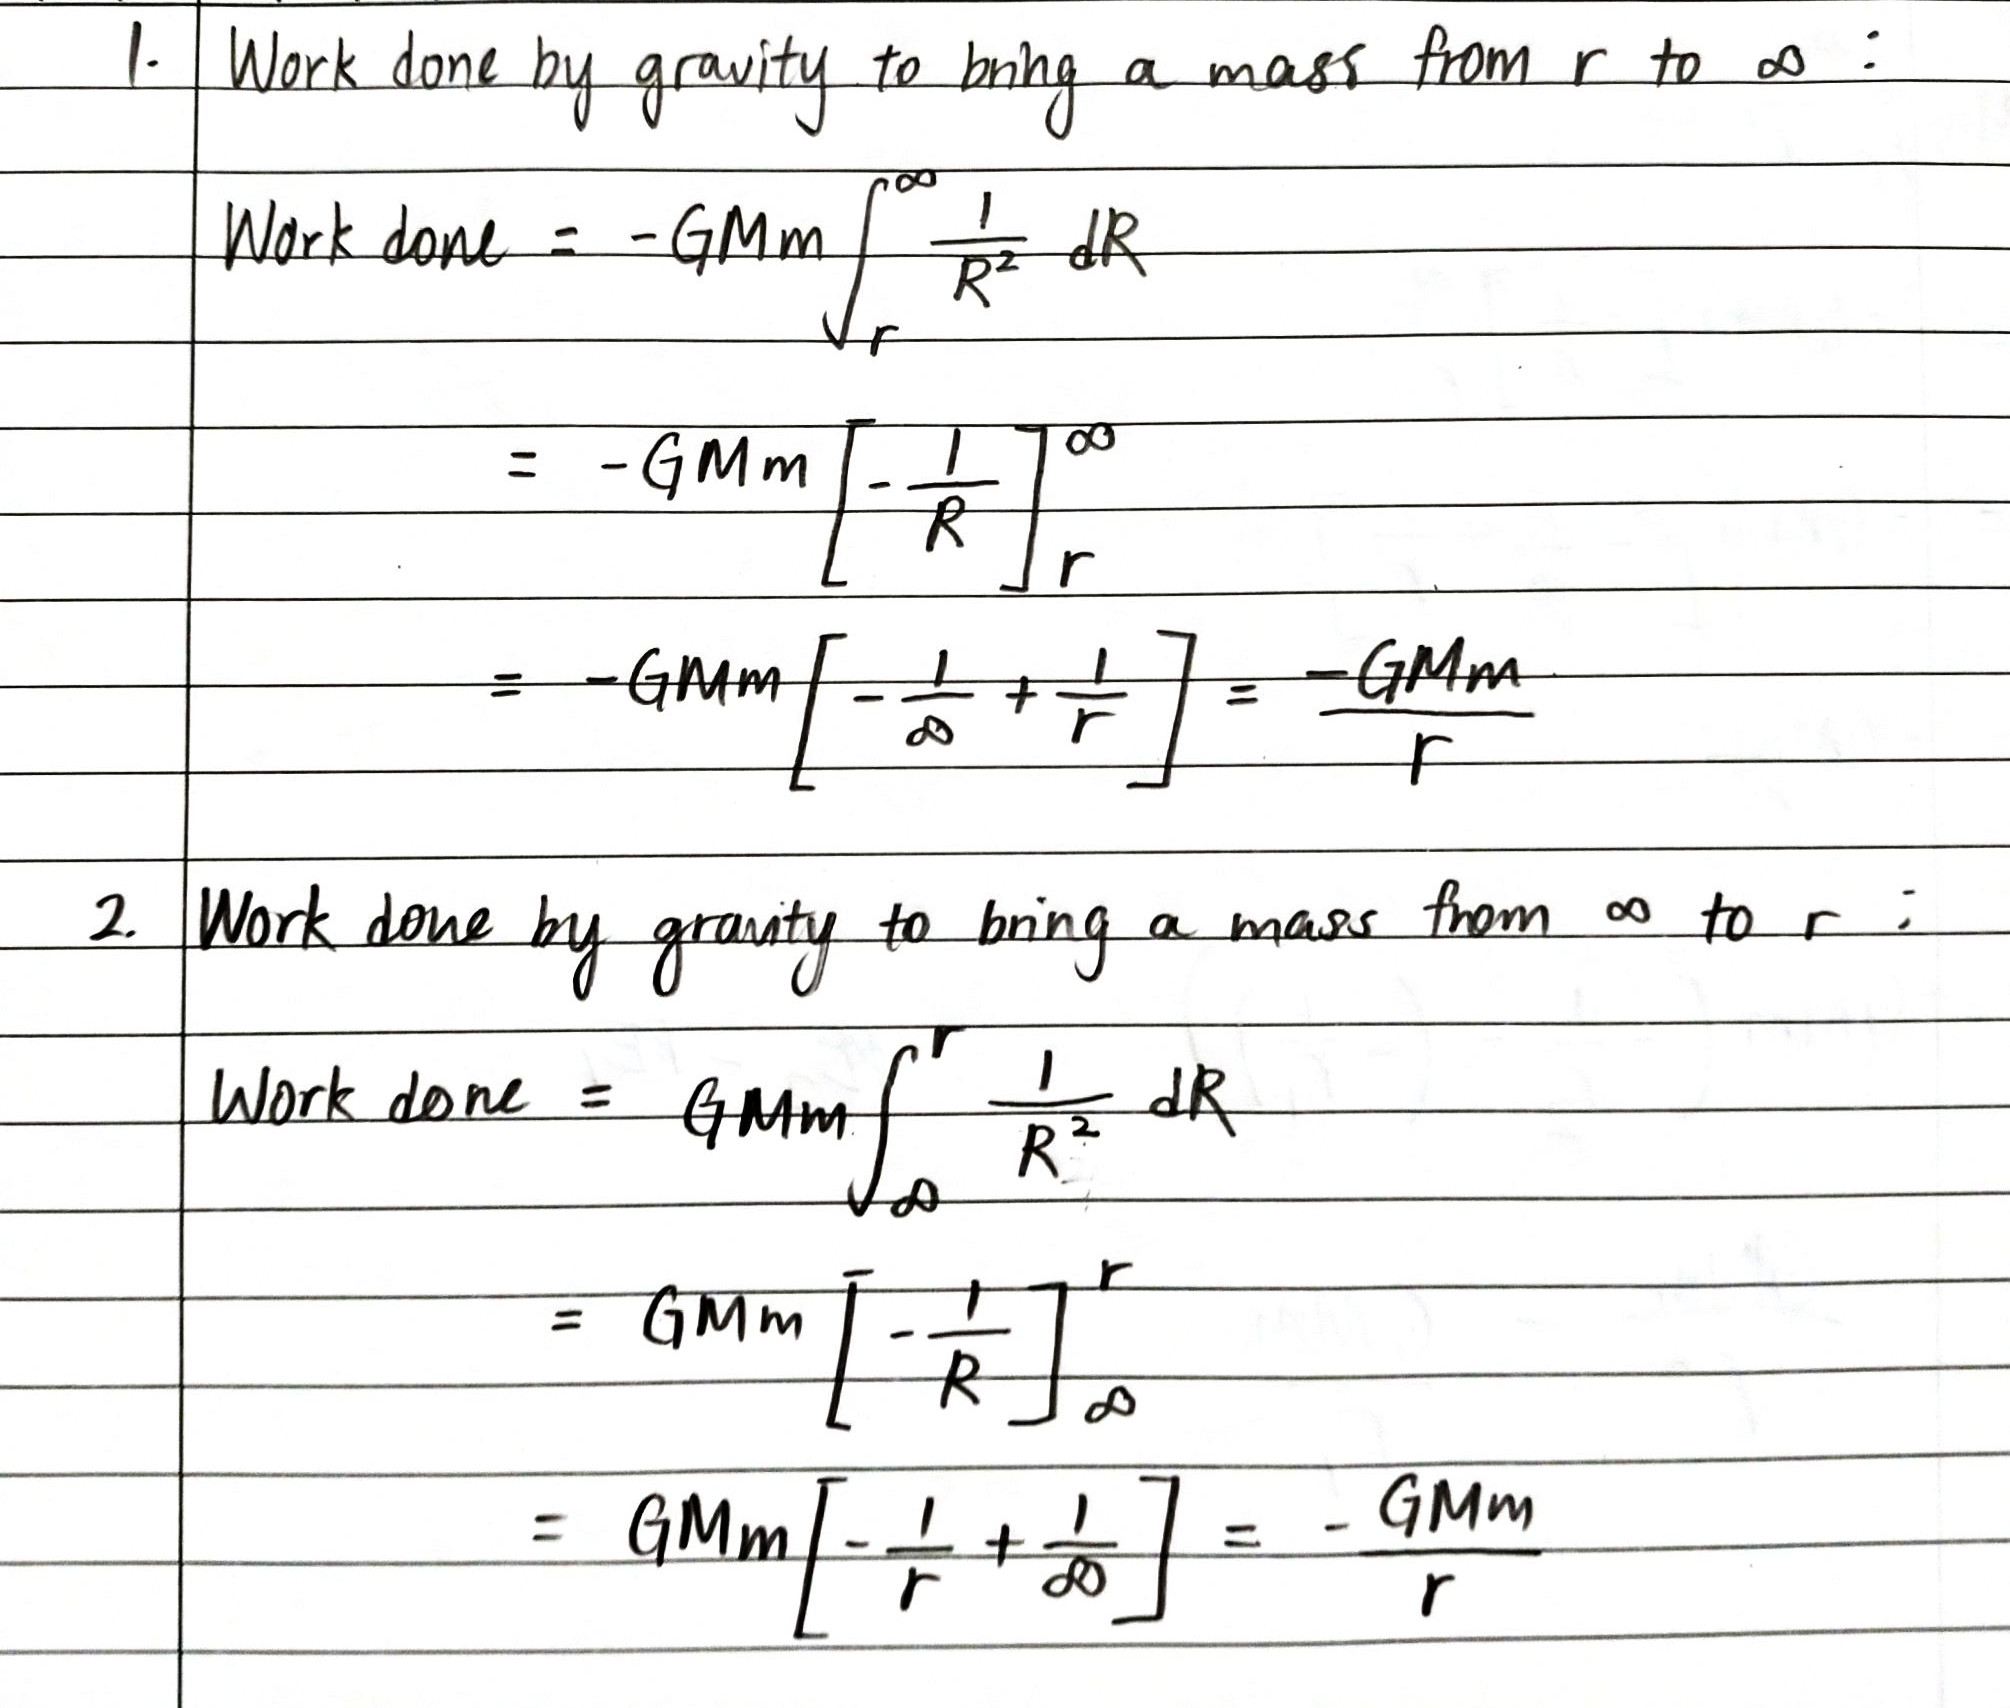 1. Work done by gravity to bring a mass from r to ∞ :
Work done = -GMm ∫_r^∞ 1/R² dR
= -GMm [-1/R]_r^∞
= -GMm [-1/∞ + 1/r] = -GMm/r
2. Work done by gravity to bring a mass from ∞ to r :
Work done = GMm ∫_∞^r 1/R² dR
= GMm [-1/R]_∞^r
= GMm [-1/r + 1/∞] = -GMm/r